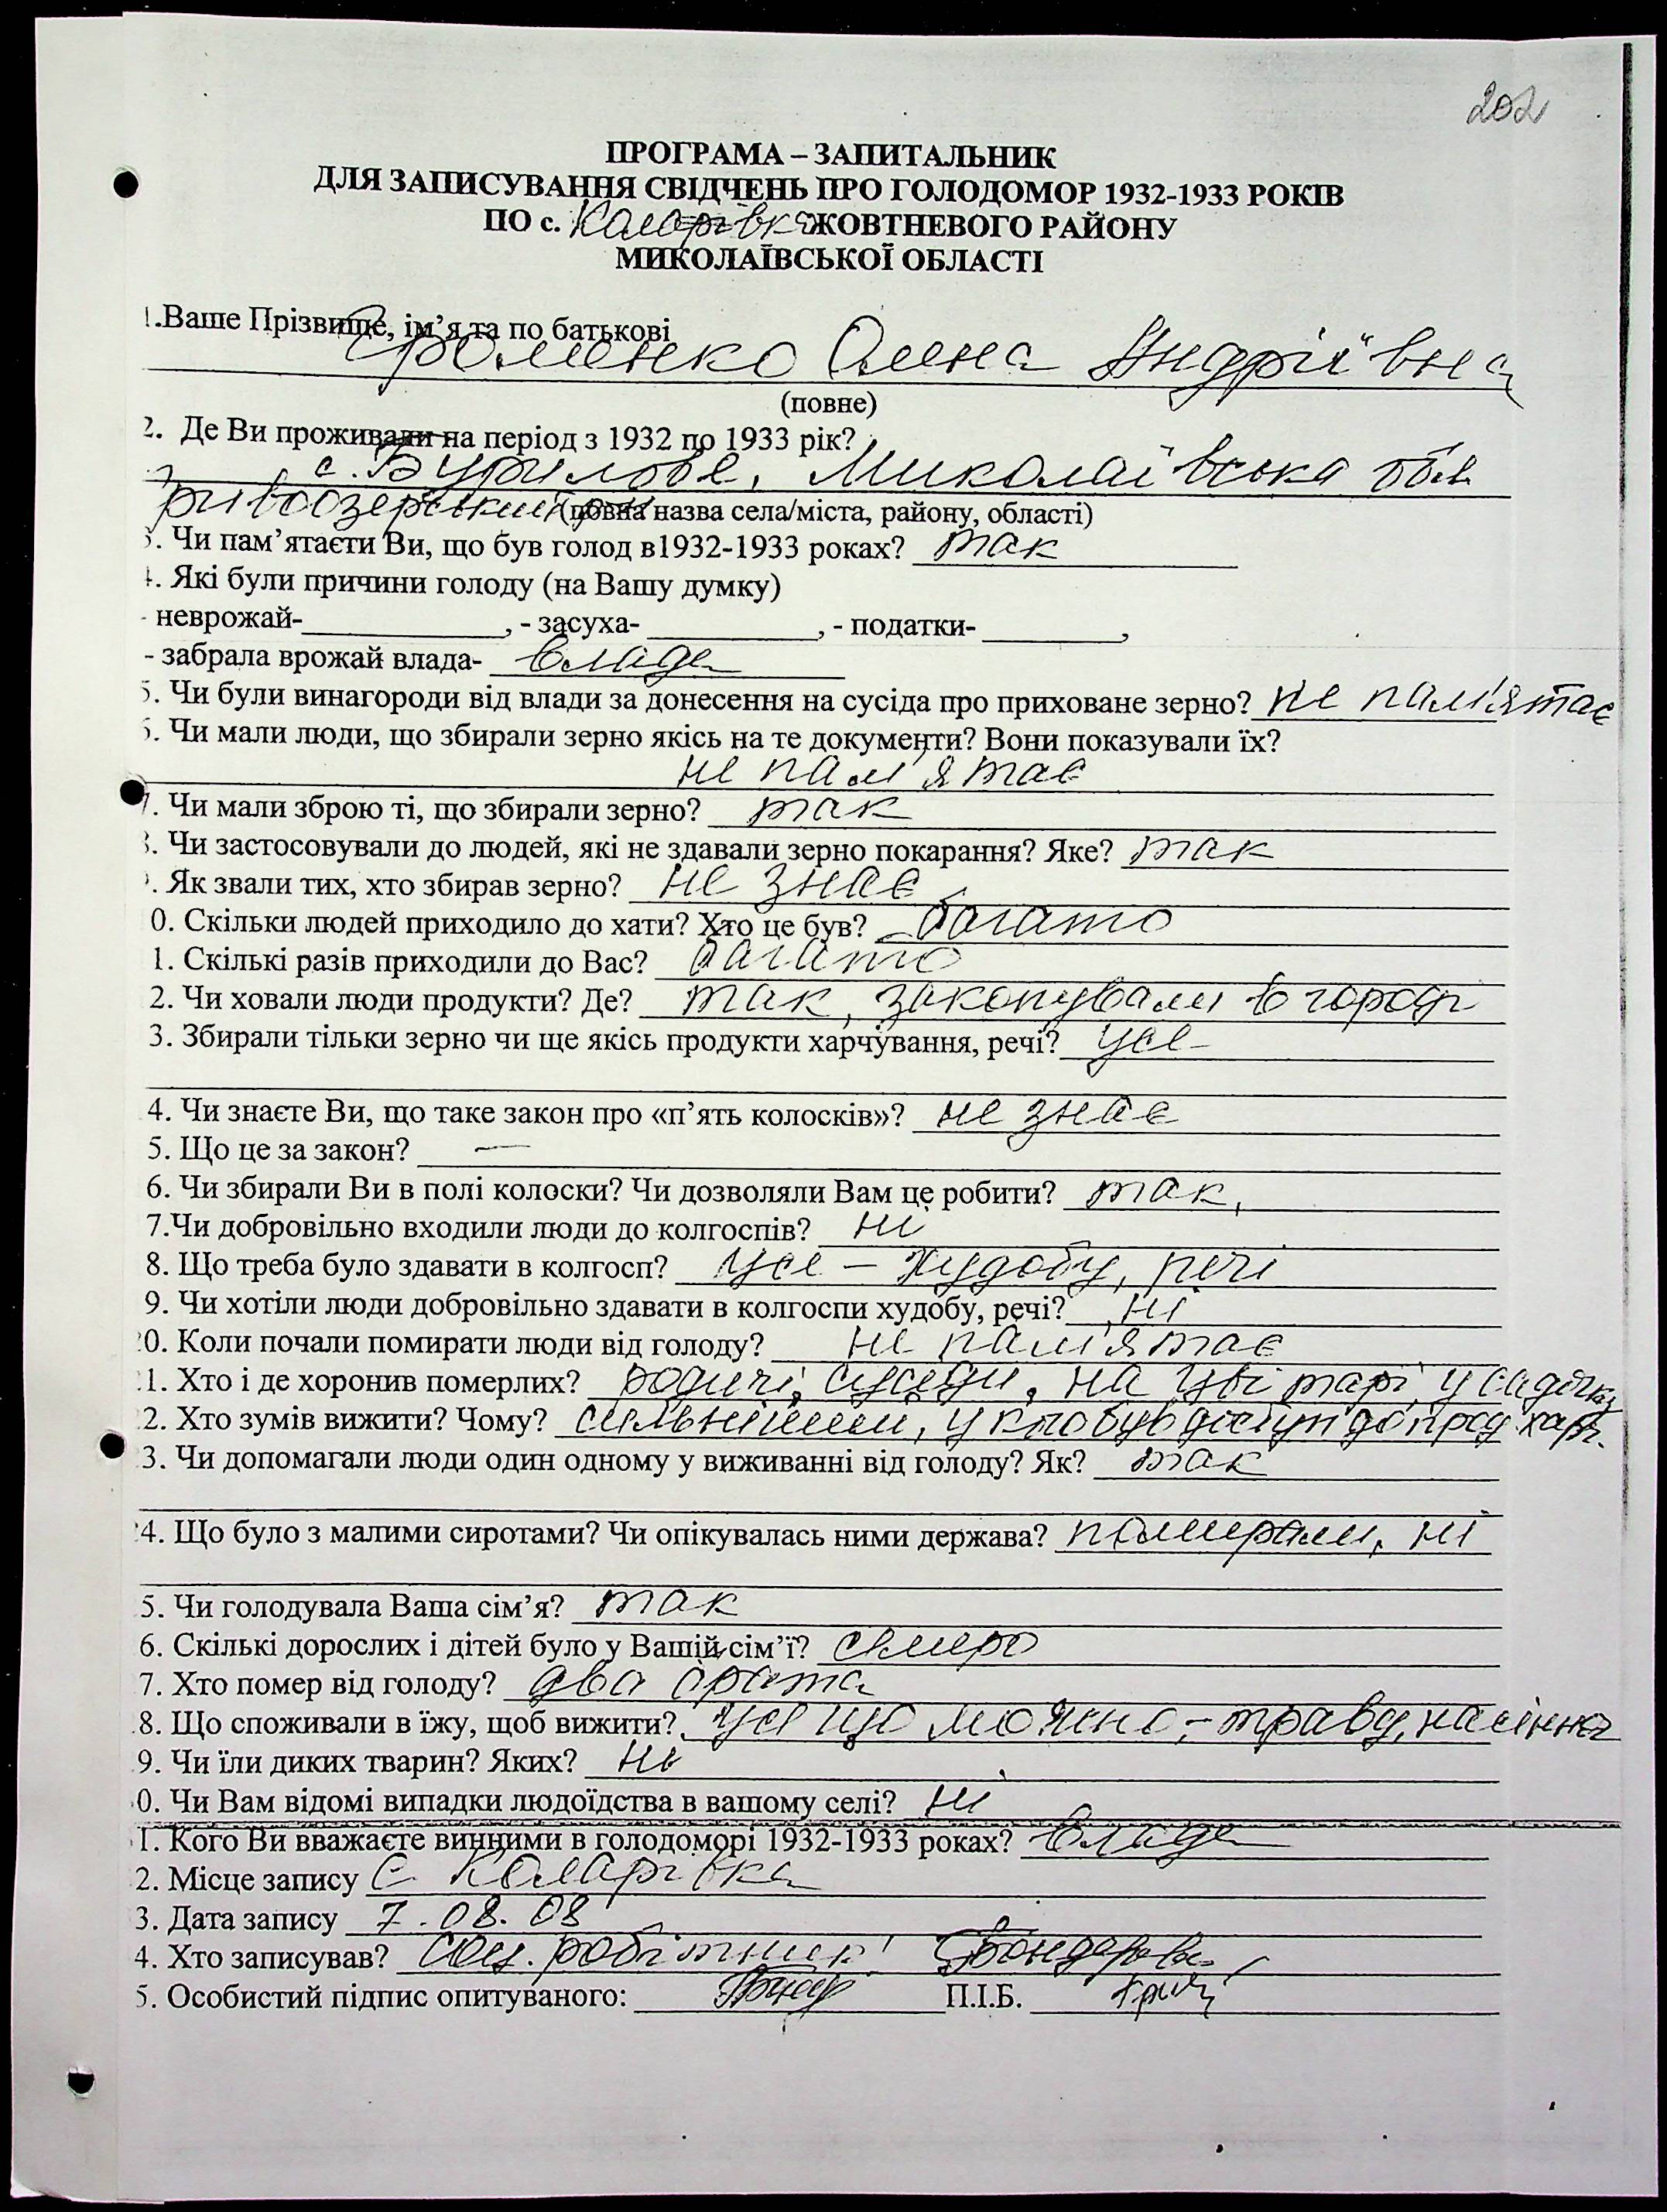 202
ПРОГРАМА – ЗАПИТАЛЬНИК
ДЛЯ ЗАПИСУВАННЯ СВІДЧЕНЬ ПРО ГОЛОДОМОР 1932-1933 РОКІВ
ПО с. Каларівка ЖОВТНЕВОГО РАЙОНУ
МИКОЛАЇВСЬКОЇ ОБЛАСТІ
1.Ваше Прізвище, ім’я та по батькові
Громенко Олена Андріївна
(повне)
2. Де Ви проживали на період з 1932 по 1933 рік?
с. Бурилове, Миколаївська обл
ривоозерський рн (повна назва села/міста, району, області)
3. Чи пам’ятаєти Ви, що був голод в1932-1933 роках? так
4. Які були причини голоду (на Вашу думку)
- неврожай-__________, - засуха-__________, - податки-__________,
- забрала врожай влада- влада
5. Чи були винагороди від влади за донесення на сусіда про приховане зерно? не пам'ятає
6. Чи мали люди, що збирали зерно якісь на те документи? Вони показували їх?
не пам'ятає
7. Чи мали зброю ті, що збирали зерно? так
8. Чи застосовували до людей, які не здавали зерно покарання? Яке? так
9. Як звали тих, хто збирав зерно? не знає
0. Скільки людей приходило до хати? Хто це був? багато
1. Скількі разів приходили до Вас? багато
2. Чи ховали люди продукти? Де? так, закопували в городі
3. Збирали тільки зерно чи ще якісь продукти харчування, речі? усе
4. Чи знаєте Ви, що таке закон про «п’ять колосків»? не знає
5. Що це за закон? —
6. Чи збирали Ви в полі колоски? Чи дозволяли Вам це робити? так,
7.Чи добровільно входили люди до колгоспів? ні
8. Що треба було здавати в колгосп? усе – худобу, речі
9. Чи хотіли люди добровільно здавати в колгоспи худобу, речі? ні
20. Коли почали помирати люди від голоду? не пам'ятає
21. Хто і де хоронив померлих? родичі, сусіди, на цвінтарі, у садочку
22. Хто зумів вижити? Чому? сильнішим, у кто був доступ до прод. харч.
23. Чи допомагали люди один одному у виживанні від голоду? Як? так
24. Що було з малими сиротами? Чи опікувалась ними держава? помирали, ні
5. Чи голодувала Ваша сім’я? так
6. Скількі дорослих і дітей було у Вашій сім’ї? семеро
7. Хто помер від голоду? два брата
8. Що споживали в їжу, щоб вижити? усе що можно, – траву, насіння
9. Чи їли диких тварин? Яких? ні
0. Чи Вам відомі випадки людоїдства в вашому селі? ні
1. Кого Ви вважаєте винними в голодоморі 1932-1933 роках? влада
2. Місце запису с. Каларівка
3. Дата запису 7.08.08
4. Хто записував? Соц. робітник Бондарева
5. Особистий підпис опитуваного: П.І.Б.